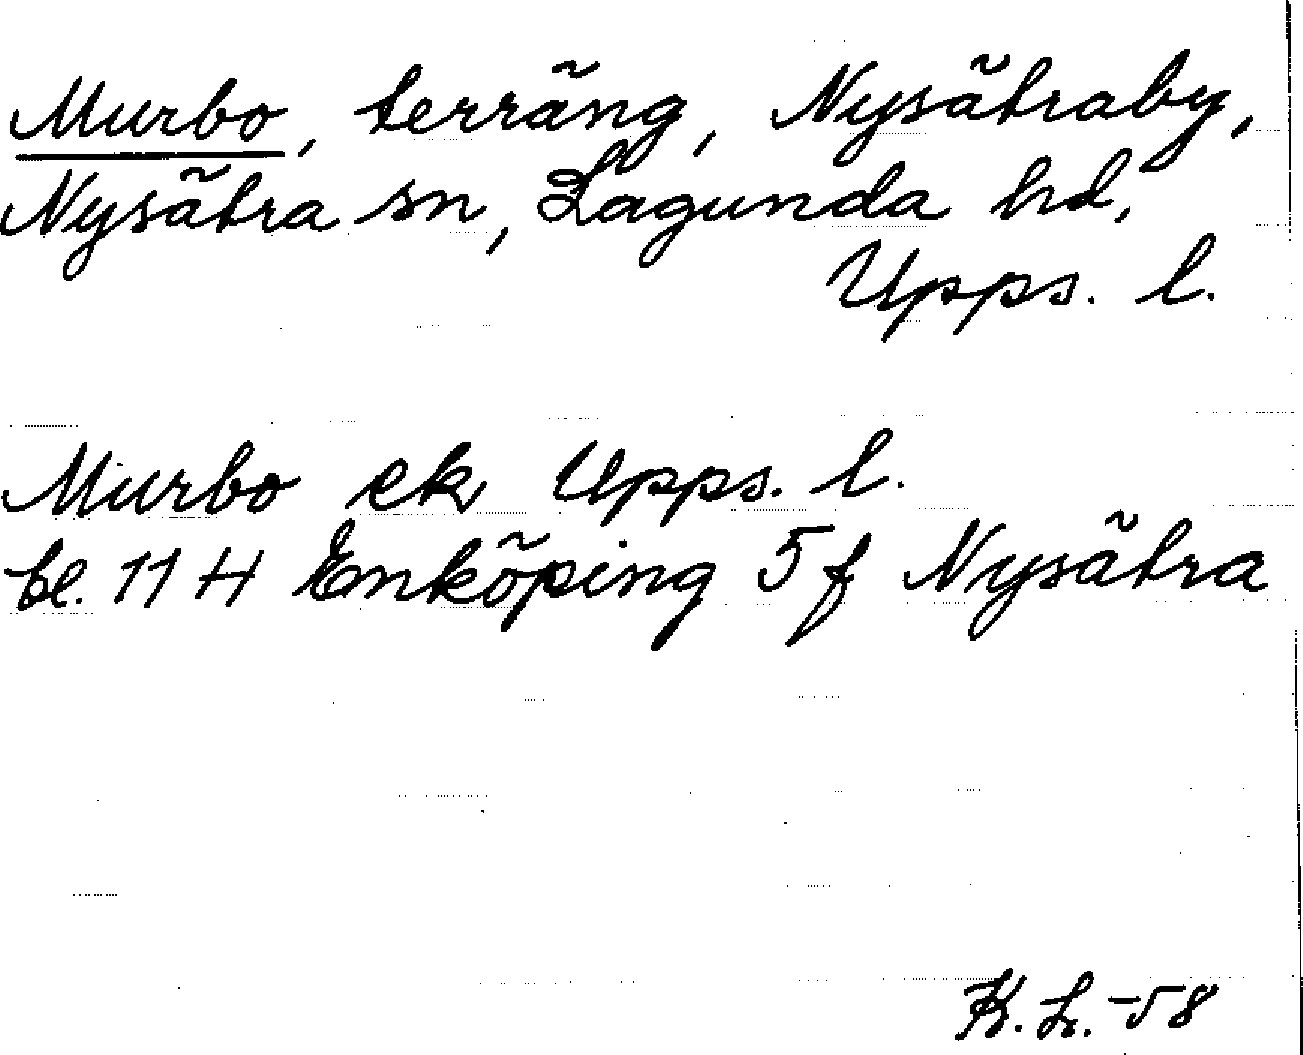 Murbo, terräng, Nysätraby,
Nysätra sn, Lagunda hd,
Upps. l.
Murbo ek Upps. l.
bl. 11 H Enköping 5 f Nysätra
K. L. -58